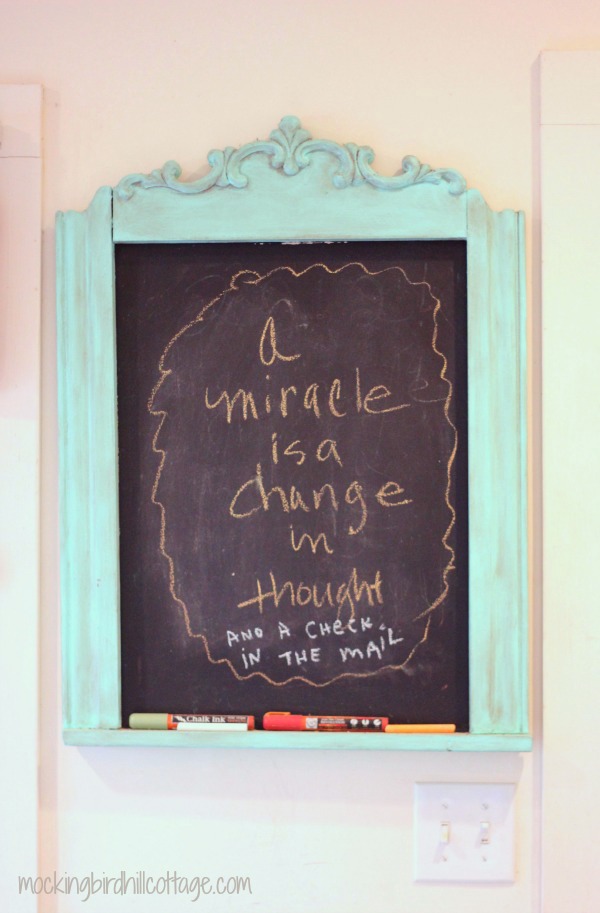 a
miracle
is a
change
in
thought
AND A CHECK
IN THE MAIL
Chalk Ink
mockingbirdhillcottage.com